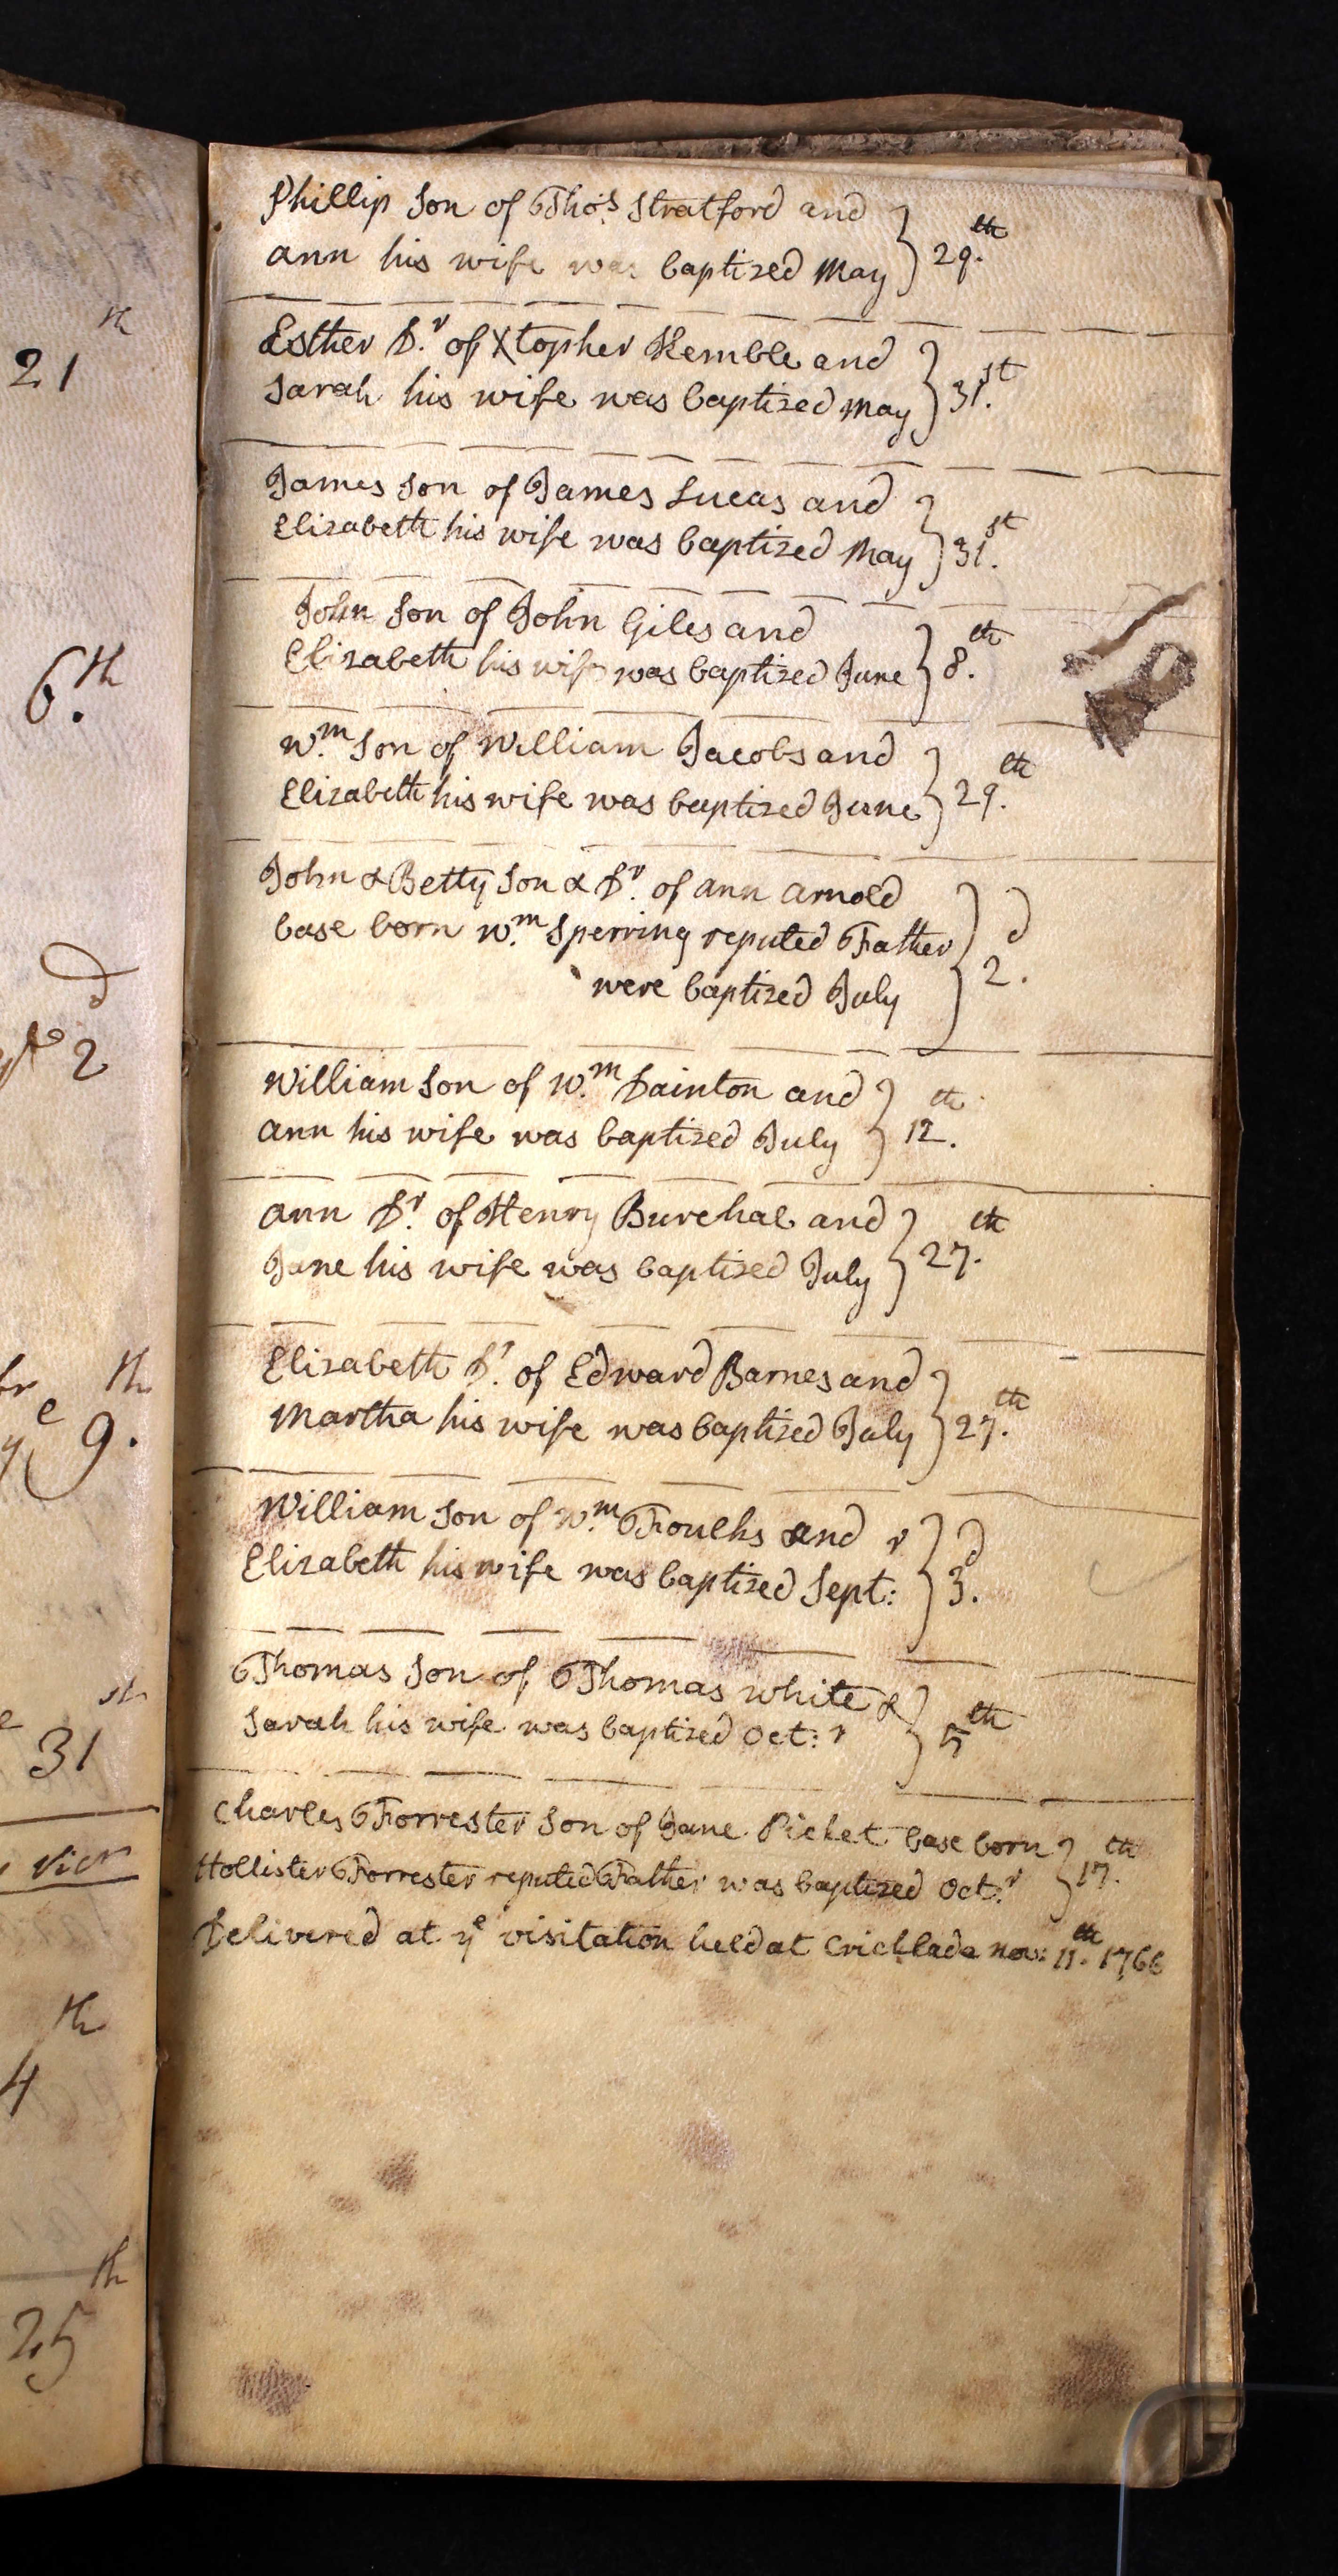 21 th
6.th
d
2
th
9.
st
31
th
4
th
25
Phillip Son of Tho.s Stratford and
ann his wife was baptized May } 29.th
Esther D.r of Xtopher Kemble and
Sarah his wife was baptized May } 31.st
James Son of James Lucas and
Elizabeth his wife was baptized May } 31.st
John Son of John Giles and
Elizabeth his wife was baptized June } 8.th
W.m Son of William Jacobs and
Elizabeth his wife was baptized June } 29.th
John & Betty Son & D.r of ann arnold
base born W.m Sperring reputed Father
were baptized July } 2.d
William Son of W.m Dainton and
ann his wife was baptized July } 12.th
ann D.r of Henry Burchal and
Jane his wife was baptized July } 27.th
Elizabeth D.r of Edward Barnes and
Martha his wife was baptized July } 27.th
William Son of W.m Foulks and
Elizabeth his wife was baptized Sept:r } 3.d
Thomas Son of Thomas white &
Sarah his wife was baptized Oct:r } 5th
Charles Forrester Son of Jane Picket base born
Hollister Forrester reputed Father was baptized Oct.r } 17.th
Delivered at ye visitation held at Cricklade nov: 11.th 1766